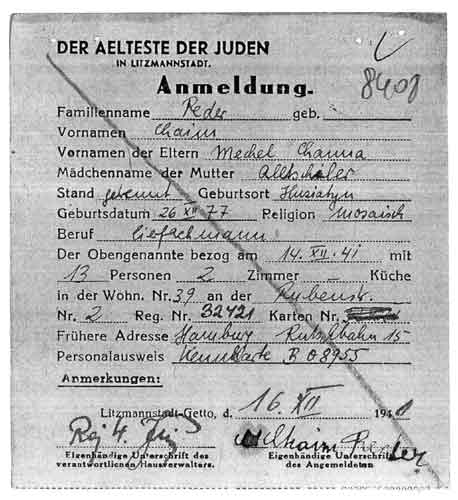 DER AELTESTE DER JUDEN
IN LITZMANNSTADT.
8408
Anmeldung.
Familienname Feder geb.
Vornamen Chaim
Vornamen der Eltern Mechel Channa
Mädchenname der Mutter
Stand getrennt Geburtsort Husiatyn
Geburtsdatum 26 XII 77 Religion mosaisch
Beruf
Der Obengenannte bezog am 14. XII. 41 mit
13 Personen 2 Zimmer – Küche
in der Wohn. Nr. 39 an der Rubenstr.
Nr. 2 Reg. Nr. 32421 Karten Nr.
Frühere Adresse Hamburg Rutschbahn 15
Personalausweis Kennkarte B 08955
Anmerkungen:
Litzmannstadt-Getto, d. 16. XII 1941
Chaim Feder
Eigenhändige Unterschrift des verantwortlichen Hausverwalters.
Eigenhändige Unterschrift des Angemeldeten